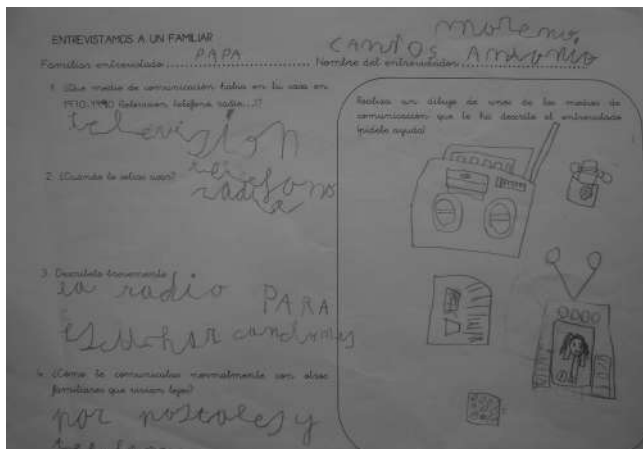 moreno
ENTREVISTAMOS A UN FAMILIAR
Familiar entrevistado PAPA Nombre del entrevistador CANTOS ANTONIO
1. ¿Qué medio de comunicación había en tu casa en
1970-1990 (televisión, teléfono, radio...)?
television
telefono
radio
2. ¿Cuándo lo solías usar?
3. Descríbelo brevemente
la radio PARA
4. ¿Cómo te comunicabas normalmente con otros
familiares que vivían lejos?
por postales y
Realiza un dibujo de unos de los medios de
comunicación que te ha descrito el entrevistado
(pídele ayuda)